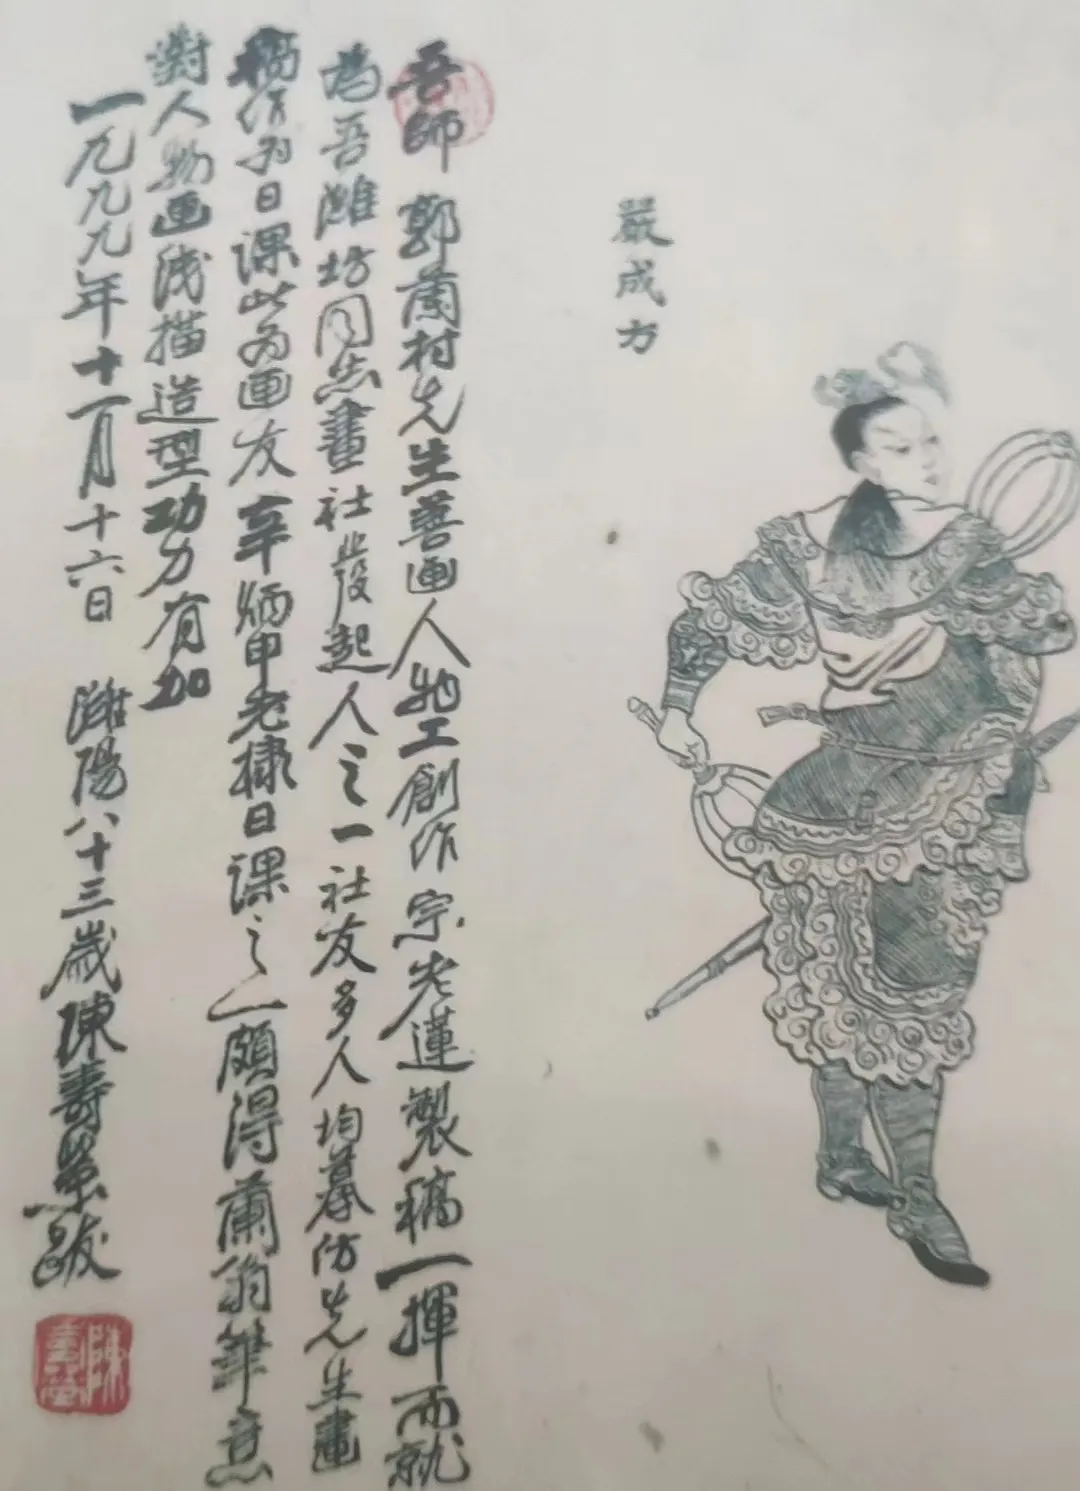 嚴成方
吾師 郭蘭村先生善画人物工創作宗老蓮製稿一揮而就
為吾濰坊同志畫社發起人之一社友多人均摹仿先生畫
稿作为日课此为画友辛炳申老棣日课之一頗得蘭翁筆意
對人物画线描造型功力有加
一九九九年十一月十六日 濰陽八十三歲陳壽榮跋
陳壽榮